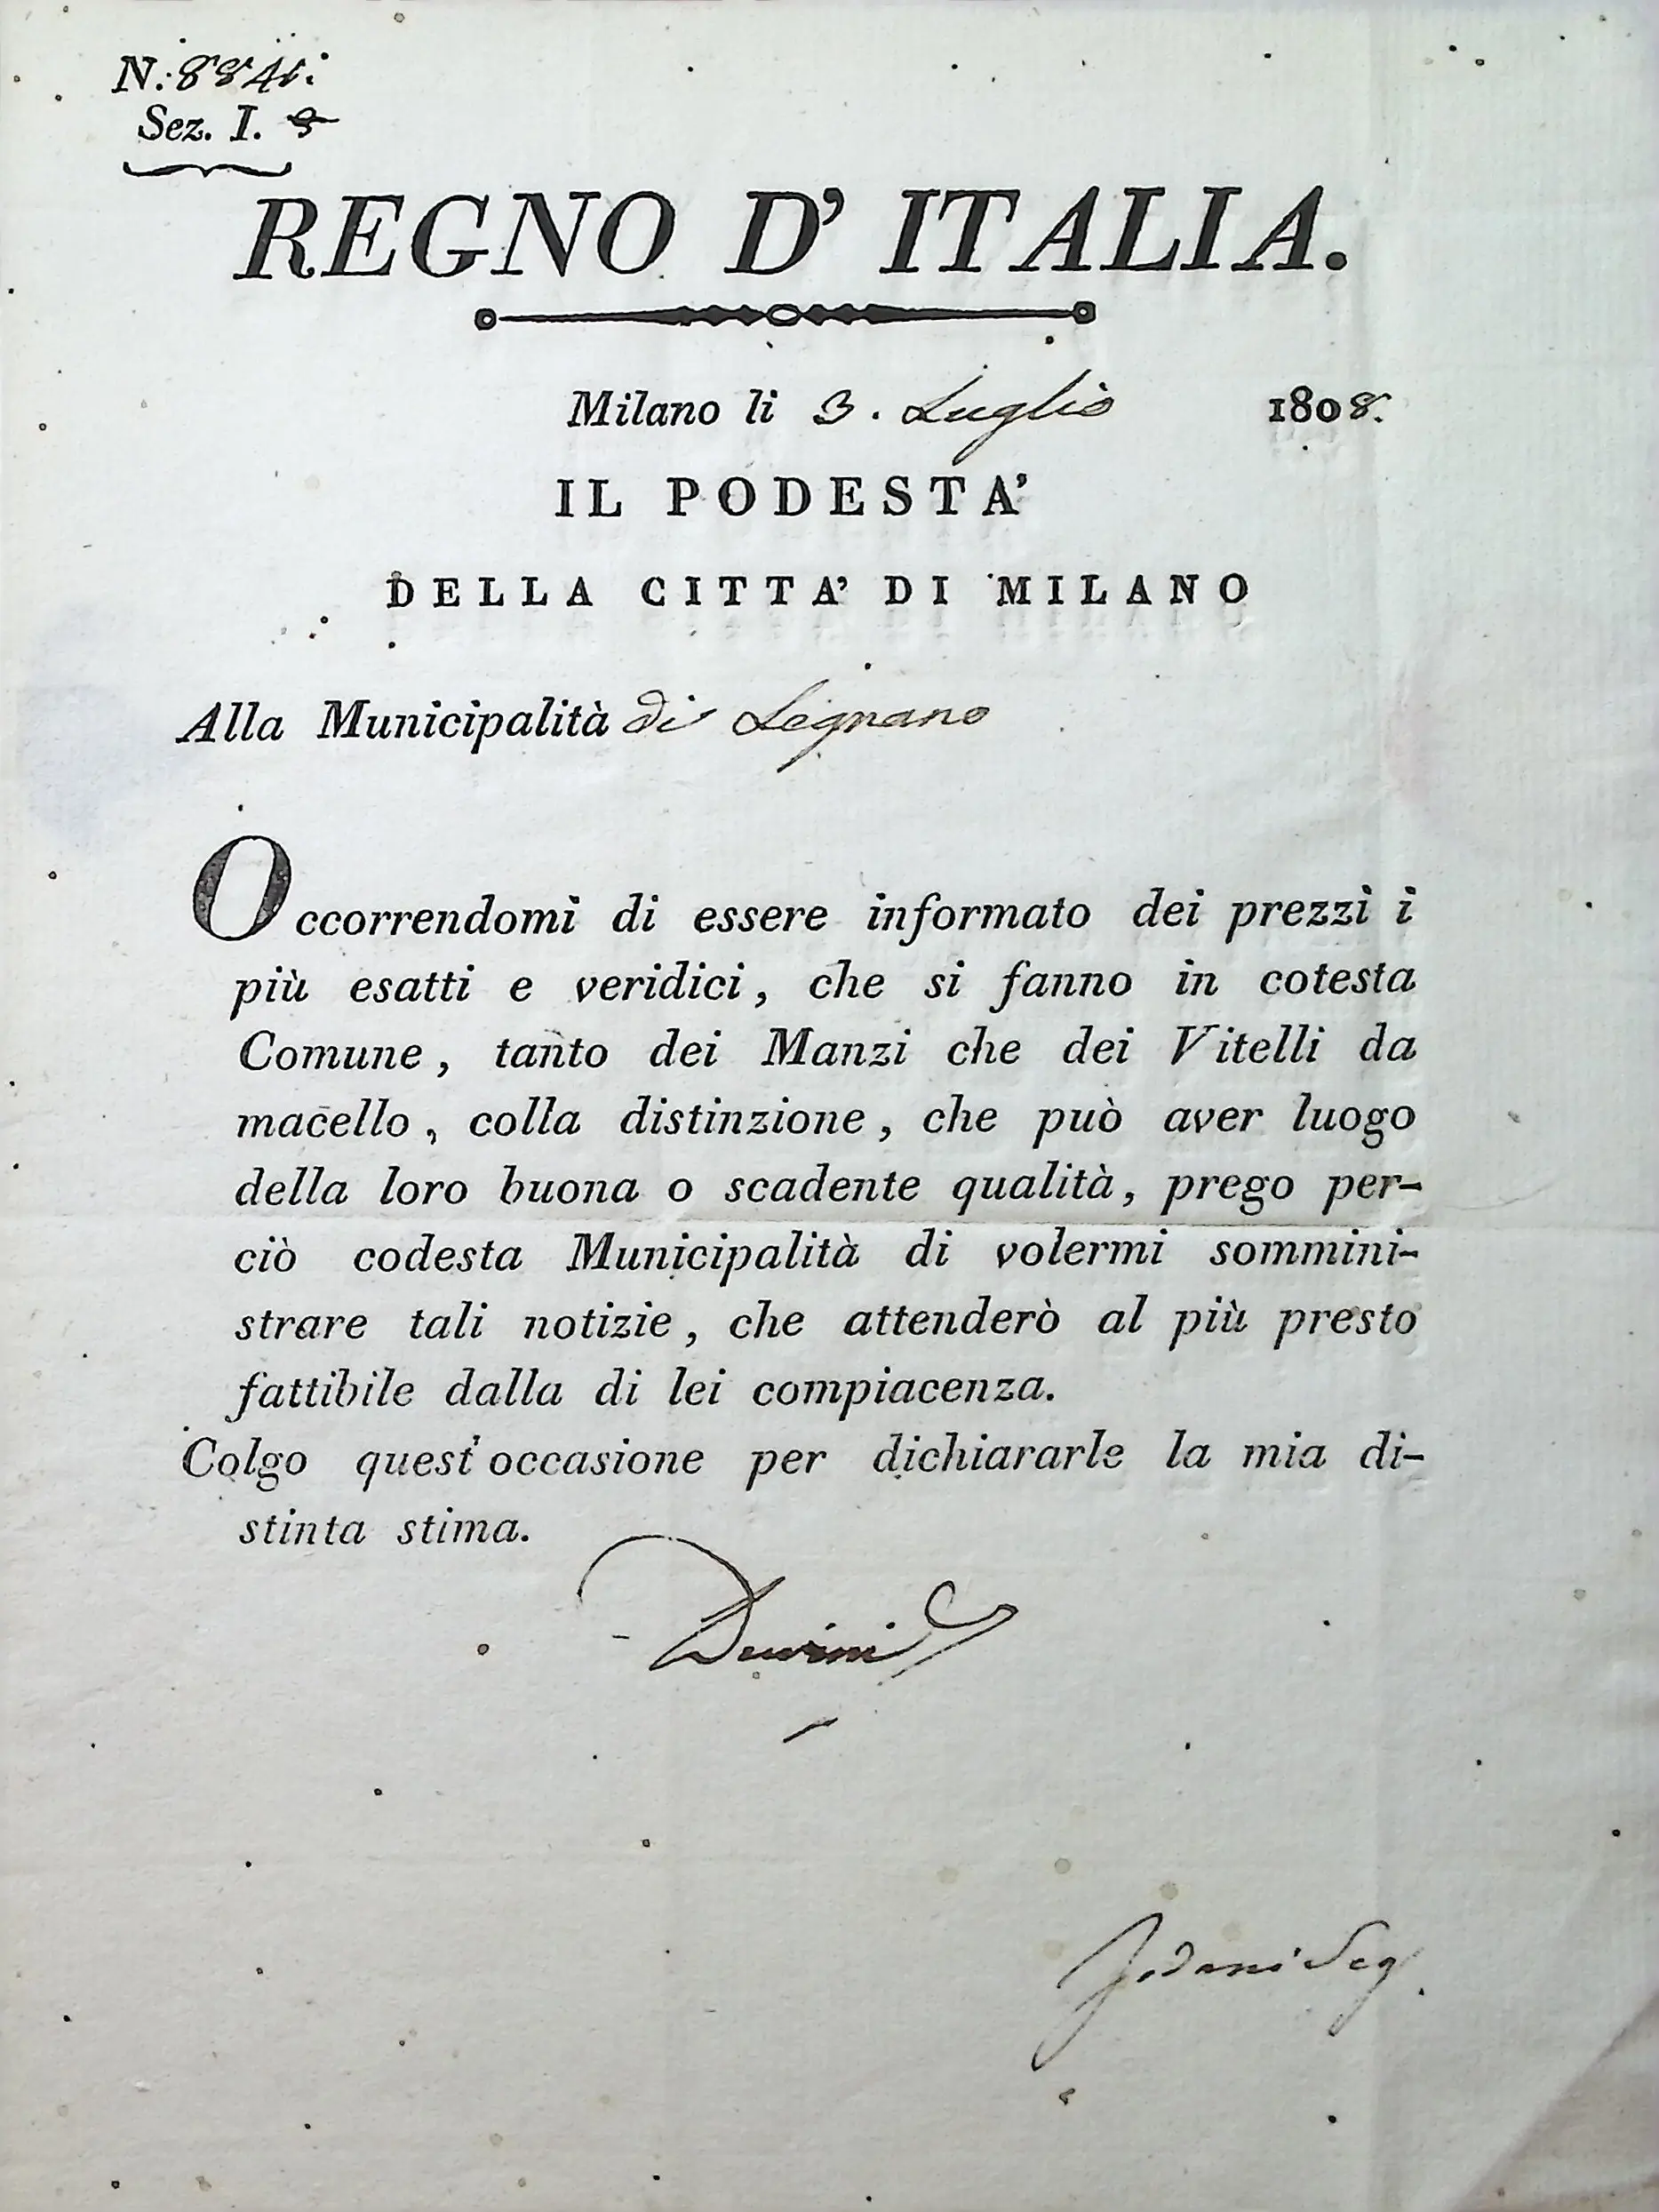 N.: 8841.
Sez. I.
REGNO D' ITALIA.
Milano li 3. Luglio 1808.
IL PODESTA'
DELLA CITTA' DI MILANO
Alla Municipalità di Legnano
Occorrendomi di essere informato dei prezzi i
più esatti e veridici, che si fanno in cotesta
Comune, tanto dei Manzi che dei Vitelli da
macello, colla distinzione, che può aver luogo
della loro buona o scadente qualità, prego per-
ciò codesta Municipalità di volermi sommini-
strare tali notizie, che attenderò al più presto
fattibile dalla di lei compiacenza.
Colgo quest'occasione per dichiararle la mia di-
stinta stima.
Durini
Seg.